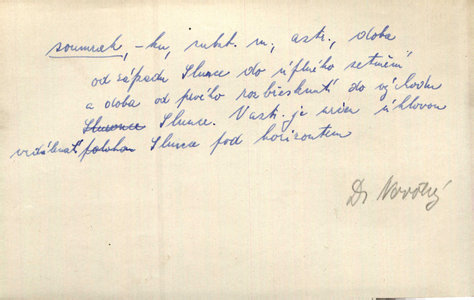 soumrak, -ku, subst. m., astr., doba
od západu Slunce do úplného setmění
a doba od prvého rozbřesknutí do východu
Slunce. Vasti. je určen úhlovou
vzdáleností polohou Slunce pod horizontem
Dr Novotný